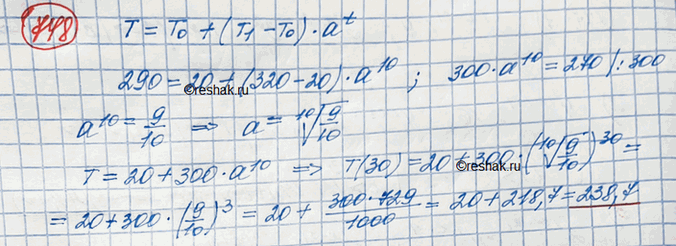 748 T = T₀ + (T₁ − T₀) · aᵗ
290 = 20 + (320 − 20) · a¹⁰ ; 300 · a¹⁰ = 270 | : 300
©reshak.ru
a¹⁰ = 9/10 ⇒ a = ¹⁰√(9/10)
T = 20 + 300 · a¹⁰ ⇒ T(30) = 20 + 300 · (¹⁰√(9/10))³⁰ =
©reshak.ru
= 20 + 300 · (9/10)³ = 20 + (300 · 729)/1000 = 20 + 218,7 = 238,7